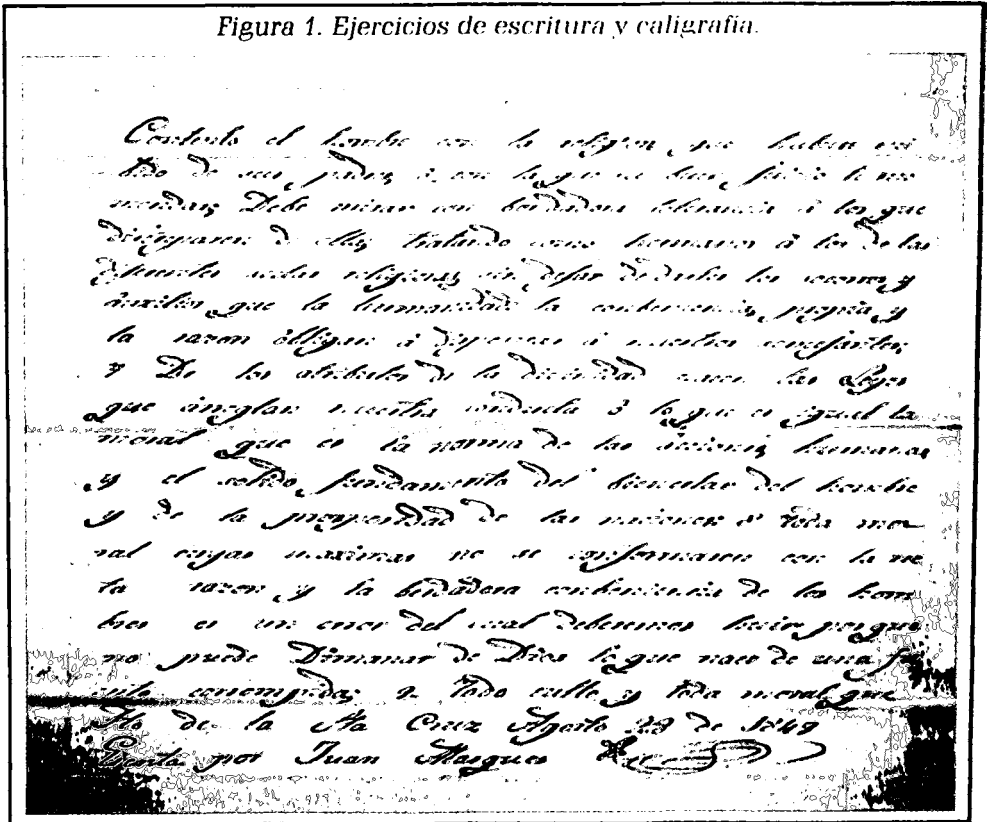 Figura 1. Ejercicios de escritura y caligrafía.
Contento el hombre con la religion que hubiere
de sus padres ó con la que su buen juicio le
Debe mirar con berdadera tolerancia á los que
de ella, tratando como hermanos á los de las
diferentes sectas religiosas, sin dejar de los socorros y
que la humanidad la conbeniencia propia y
la razon obligan á á nuestros
De los atributos de la divinidad nacen las Leyes
que arreglan nuestra conducta ó lo que es igual la
moral que es la norma de las acciones humanas
y el solido fundamento del bienestar del hombre
y de la prosperidad de las naciones toda mo
ral cuyas maximas no se conformaren con la
ta razon y la berdadera conbeniencia de los hom
bres es un error del cual deberemos huir porque
no puede Dimanar de Dios lo que nace de una
corrompida; todo culto y toda moral que
de la Sta Cruz Agosto 29 de 1849
por Juan Marques